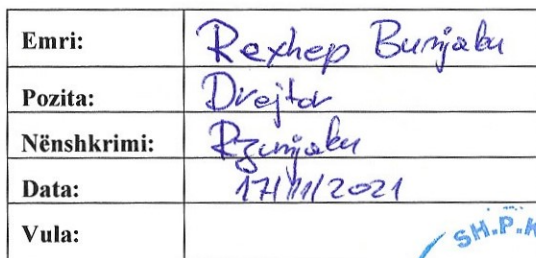 Emri: Rexhep Bunjaku
Pozita: Drejtor
Nënshkrimi: RBunjaku
Data: 17/11/2021
Vula: SH.P.K